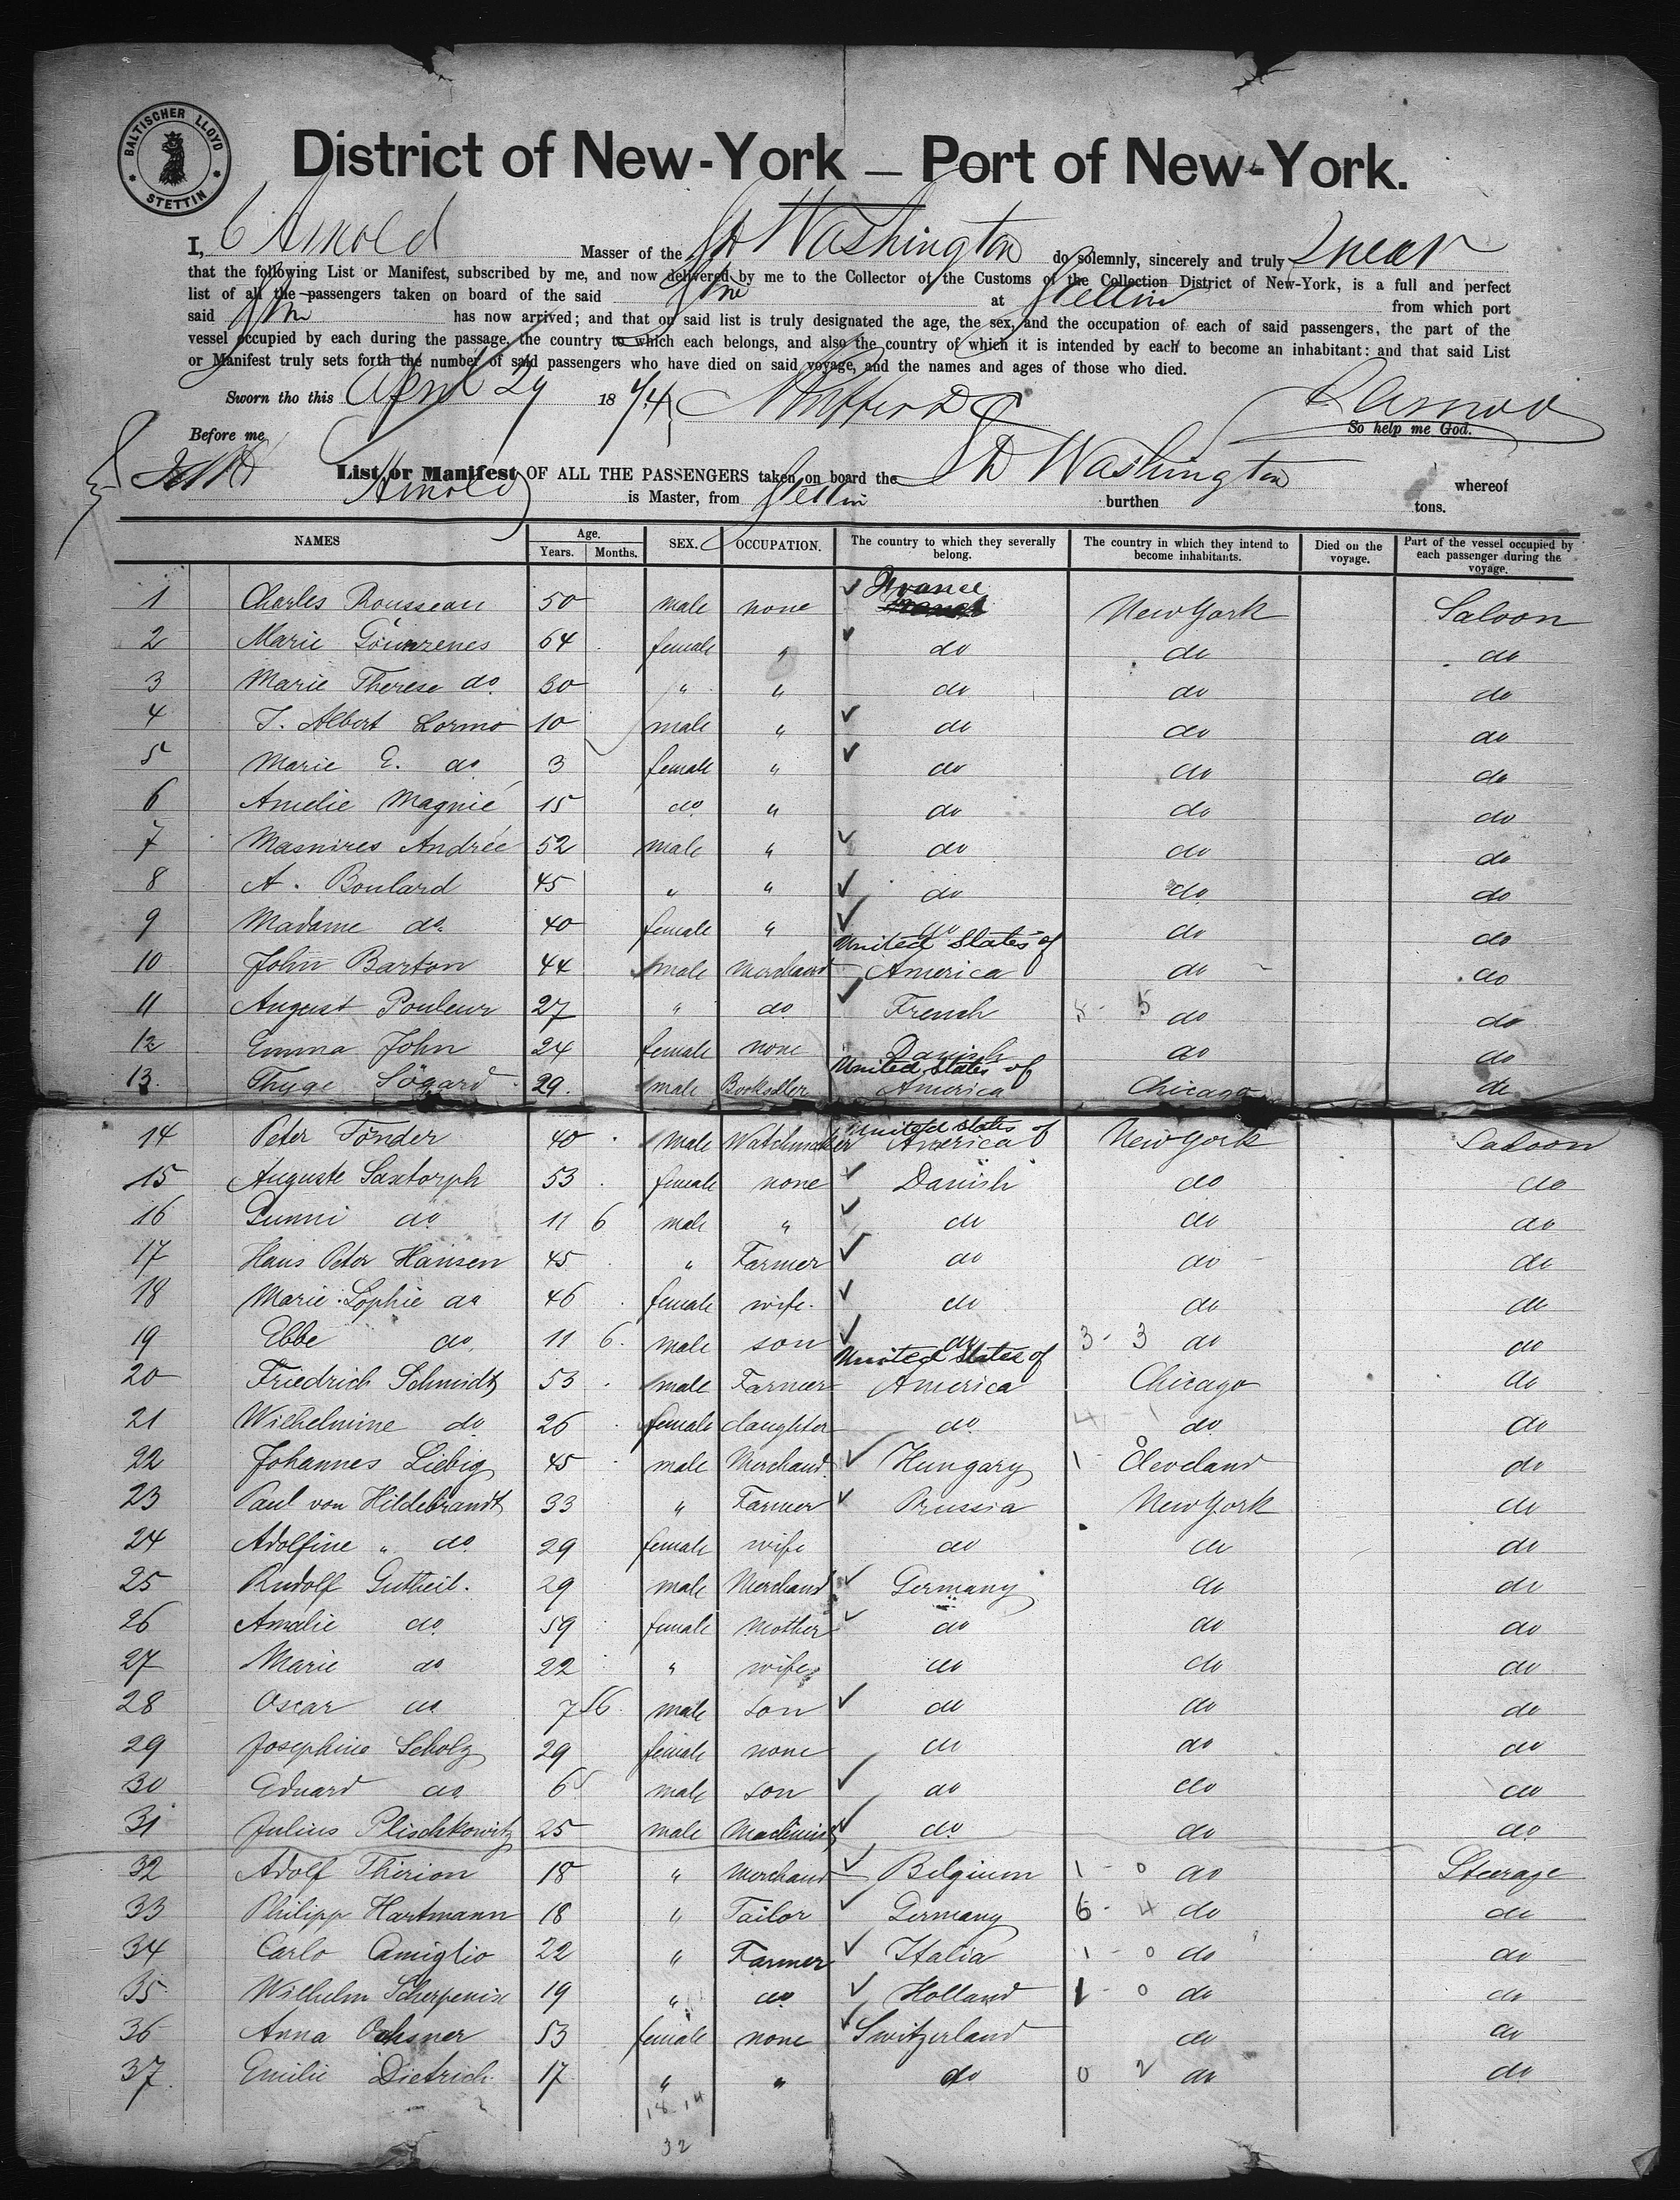 BALTISCHER LLOYD
STETTIN
District of New-York — Port of New-York.
I, C Arnold Masser of the SS Washington do solemnly, sincerely and truly swear
that the following List or Manifest, subscribed by me, and now delivered by me to the Collector of the Customs of the Collection District of New-York, is a full and perfect
list of all the passengers taken on board of the said Str at Stettin from which port
said Str has now arrived; and that on said list is truly designated the age, the sex, and the occupation of each of said passengers, the part of the
vessel occupied by each during the passage, the country to which each belongs, and also the country of which it is intended by each to become an inhabitant: and that said List
or Manifest truly sets forth the number of said passengers who have died on said voyage, and the names and ages of those who died.
Sworn tho this April 29 1874
So help me God.
Before me
List or Manifest OF ALL THE PASSENGERS taken on board the SS Washington whereof
Arnold is Master, from Stettin burthen tons.
NAMES Age. Years. Months. SEX. OCCUPATION. The country to which they severally belong. The country in which they intend to become inhabitants. Died on the voyage. Part of the vessel occupied by each passenger during the voyage.
1 Charles Rousseau 50 male none France New York Saloon
2 Marie 64 female " do do do
3 Marie Therese do 30 " " do do do
4 J. Albert Lormo 10 male " do do do
5 Marie E. do 3 female " do do do
6 Amelie Magnié 15 do " do do do
7 Masnires Andrée 52 male " do do do
8 A. Boulard 45 " " do do do
9 Madame do 40 female " do do do
10 John Barton 44 male Merchand United States of America do do
11 August Pouleur 27 " do French 8 - 5 do do
12 Emma John 24 female none Danish do do
13. Thyge Sögard 29. male Booksdler United States of America Chicago do
14 Peter Tönder 40 male Watchmaker United States of America New York Saloon
15 Auguste Saxtorph 53 female none Danish do do
16 Gunni do 11 6 male " do do do
17 Hans Peter Hansen 45 " Farmer do do do
18 Marie Sophie do 46 female wife do do do
19 Ebbe do 11 6 male son do 3 - 3 do do
20 Friedrich Schmidt 53 male Farmer United States of America Chicago do
21 Wilhelmine do 26 female daughter do 4 - 1 do do
22 Johannes Liebig 45 male Merchand Hungary 1 - 0 Cleveland do
23 Paul von Hildebrandt 33 " Farmer Prussia New York do
24 Adolfine " do 29 female wife do do do
25 Rudolf Gutheil. 29 male Merchand Germany do do
26 Amalie do 59 female Mother do do do
27 Marie do 22 " wife do do do
28 Oscar do 7 6 male son do do do
29 Josephine Scholz 29 female none do do do
30 Eduard do 6 male son do do do
31 Julius Plischkowitz 25 male Machinist do do do
32 Adolf Thirion 18 " Merchand Belgium 1 - 0 do Steerage
33 Philipp Hartmann 18 " Tailor Germany 6 - 4 do do
34 Carlo Camiglio 22 " Farmer Italia 1 - 0 do do
35 Wilhelm 19 " do Holland 1 - 0 do do
36 Anna Ochsner 53 female none Switzerland do do
37. Emilie Dietrich 17 " " do 0 2 do do
18 14
32